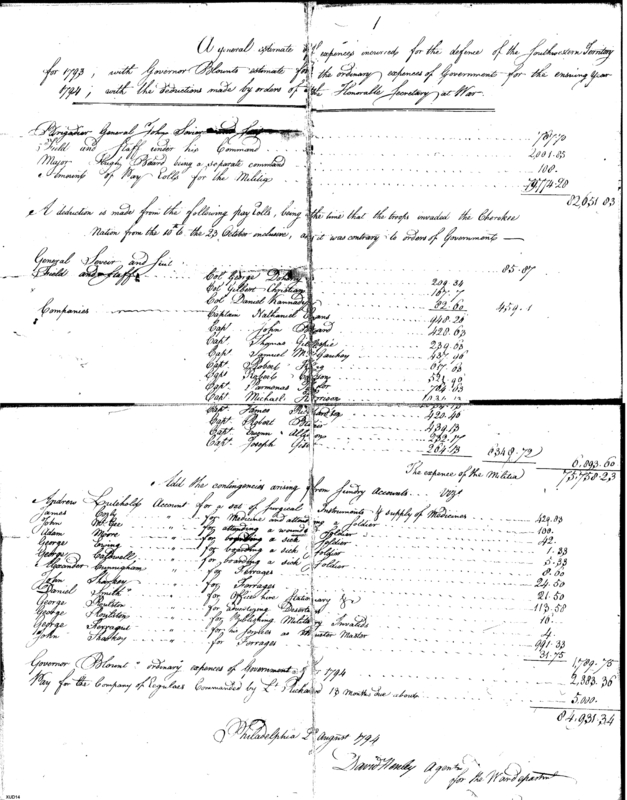 1
A general estimate of expences incurred for the defence of the Southwestern Territory
for 1793; with Governor Blounts estimate for the ordinary expences of Government for the ensuing year
1794; with the deductions made by orders of the Honorable Secretary at War
Brigadier General John Sevier
Field and Staff under his Command 2,001.03
Major Hugh Beard being a separate command 100.
Amount of Pay Rolls for the Militia 79774.20
82,651.03
A deduction is made from the following pay rolls, being the time that the troops invaded the Cherokee
Nation from the 10th to the 23 October inclusive, as it was contrary to orders of Government
General Sevier and 85.87
Field and Staff Col George
Col Gilbert Christian 209.34
Col Daniel Kannedy 167.7
Companies Captain Nathaniel Evans 82.60 459.1
Capt John Beard 948.20
Capt Thomas Gillespie 428.63
Capt Samuel 239.03
Capt Robert 437.96
Capt Roberts 617.03
Capt Parmenas Taylor
Capt Michael Harrison
Capt James
Capt Robert 420.40
Capt 434.13
Capt Joseph 204.13 6348.72 6,893.60
The expence of the Militia 75,758.23
Add the contingencies arising from Sundry Accounts Vizt
Andrew Account for a set of Surgical Instruments & supply of Medicines 424.03
James for Medicine and attend a Soldier 100.
John McGee " for attending a wounded Soldier 42.
Adam Moore " for boarding a sick Soldier 1.33
George " for boarding a sick Soldier 5.33
George Caldwell " for boarding a sick Soldier 8.00
Alexander Cunningham " for Forrage 24.50
John Sharkey " for Forrages 21.50
Daniel Smith " for Office hire Stationary &c 113.58
George Roulston " for Deserters 10.
George Roulston " for Publishing Military 4.
George Farragut " for services as Muster Master 991.33
John Sharkey " for Forrages 31.75
1,789.75
Governor Blount ordinary expences of Government for 1794 2,383.36
Pay for the Company of Regulars Commanded by Lt Rickard 13 months due about 5,000.
84,931.34
Philadelphia August 1794
David Henley Agent
for the War department
XUD14